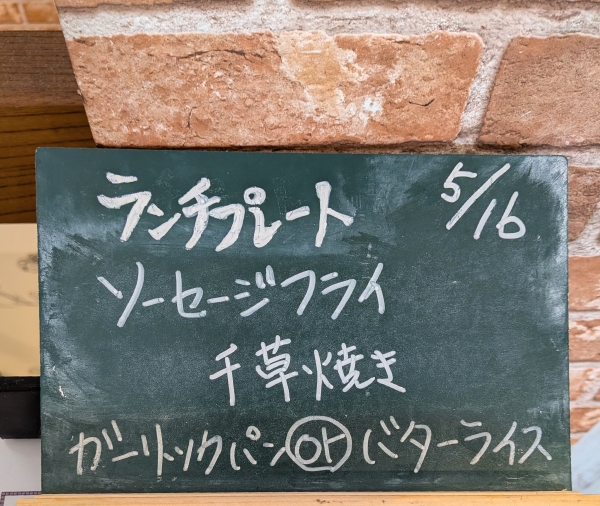 ランチプレート 5/16
ソーセージフライ
千草焼き
ガーリックパン or バターライス